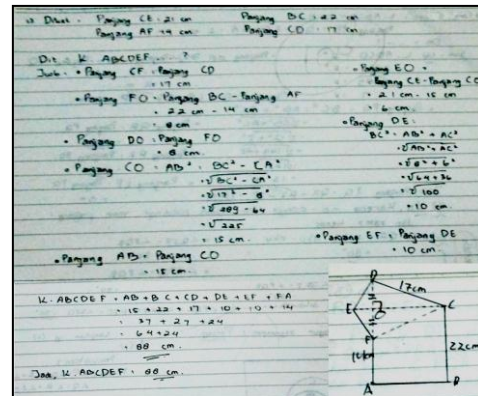 Diket : Panjang CE = 21 cm
Panjang AF = 14 cm
Panjang BC = 22 cm
Panjang CD = 17 cm
Dit. K. ABCDEF ?
Jwb :
• Panjang CF = Panjang CD
= 17 cm
• Panjang FO = Panjang BC - Panjang AF
= 22 cm - 14 cm
= 8 cm
• Panjang DO = Panjang FO
= 8 cm.
• Panjang CO = AB² = BC² - CA²
= √BC² - CA²
= √17² - 8²
= √289 - 64
= √225
= 15 cm.
• Panjang AB = Panjang CO
= 15 cm.
• Panjang EO =
Panjang CE - Panjang CO
= 21 cm - 15 cm
= 6 cm.
• Panjang DE :
BC² = AB² + AC²
= √AB² + AC²
= √8² + 6²
= √64 + 36
= √100
= 10 cm.
• Panjang EF = Panjang DE
= 10 cm.
K. ABCDEF = AB + BC + CD + DE + EF + FA
= 15 + 22 + 17 + 10 + 10 + 14
= 37 + 27 + 24
= 64 + 24
= 88 cm.
Jadi, K. ABCDEF = 88 cm.
D
17cm
E
C
F
14cm
22cm
A
B